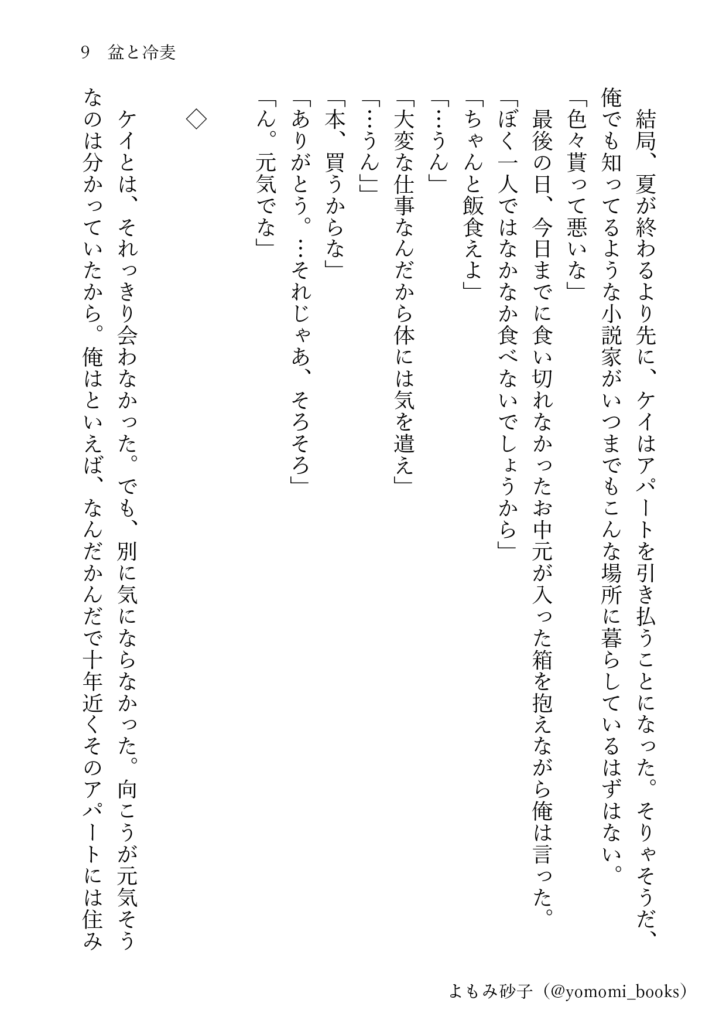 9　盆と冷麦
　結局、夏が終わるより先に、ケイはアパートを引き払うことになった。そりゃそうだ、
俺でも知ってるような小説家がいつまでもこんな場所に暮らしているはずはない。
「色々貰って悪いな」
　最後の日、今日までに食い切れなかったお中元が入った箱を抱えながら俺は言った。
「ぼく一人ではなかなか食べないでしょうから」
「ちゃんと飯食えよ」
「…うん」
「大変な仕事なんだから体には気を遣え」
「…うん」」
「本、買うからな」
「ありがとう。…それじゃあ、そろそろ」
「ん。元気でな」
◇
　ケイとは、それっきり会わなかった。でも、別に気にならなかった。向こうが元気そう
なのは分かっていたから。俺はといえば、なんだかんだで十年近くそのアパートには住み
よもみ砂子（@yomomi_books）